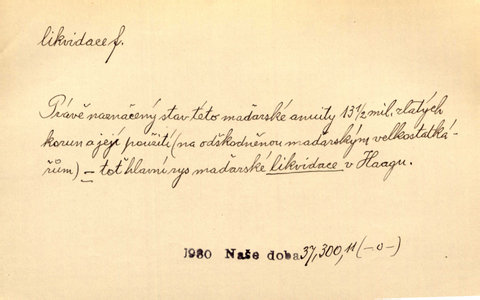 likvidace f.
Právě naznačený stav této maďarské anuity 13 1/2 mil. zlatých
korun a její použití (na odškodněnou maďarským velkostatká-
řům) – toť hlavní rys maďarské likvidace v Haagu.
1930 Naše doba 37, 300, 11 (-o-)